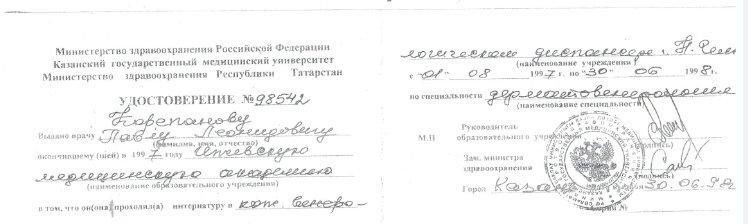 Министерство здравоохранения Российской Федерации
Казанский государственный медицинский университет
Министерство здравоохранения Республики Татарстан
УДОСТОВЕРЕНИЕ № 98542
Карепанову
Выдано врачу Павлу Леонидовичу
(фамилия, имя, отчество)
окончившему (шей) в 1997 году Ижевскую
медицинскую академию
(наименование образовательного учреждения)
в том, что он(она) проходил(а) интернатуру в кож. венеро-
логическом диспансере г. Н. Челн
(наименование учреждения)
с "01" 08 1997 г. по "30" 06 1998 г.
по специальности дерматовенерология
(наименование специальности)
Руководитель
М.П образовательного учреждения
(подпись)
Зам. министра
здравоохранения
(подпись)
Город Казань 30.06.98г